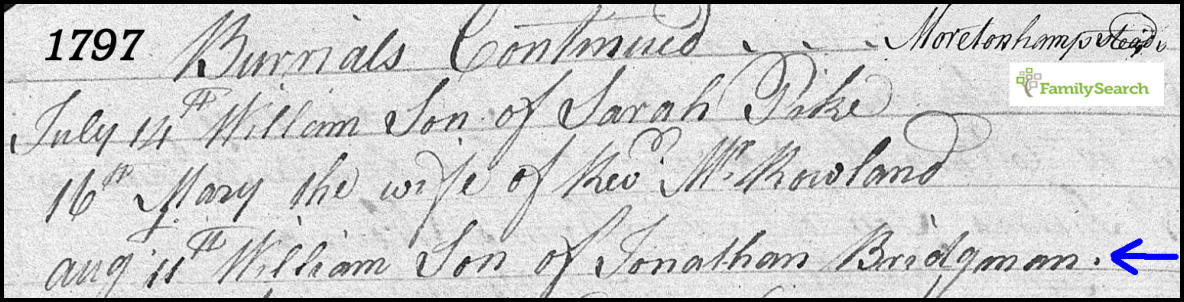 1797 Burrials Continued . . . Moretonhampstead
FamilySearch
July 14th William Son of Sarah Pike
16th Mary the wife of Revd Mr. Rowland
aug 11th William Son of Jonathan Bridgman.